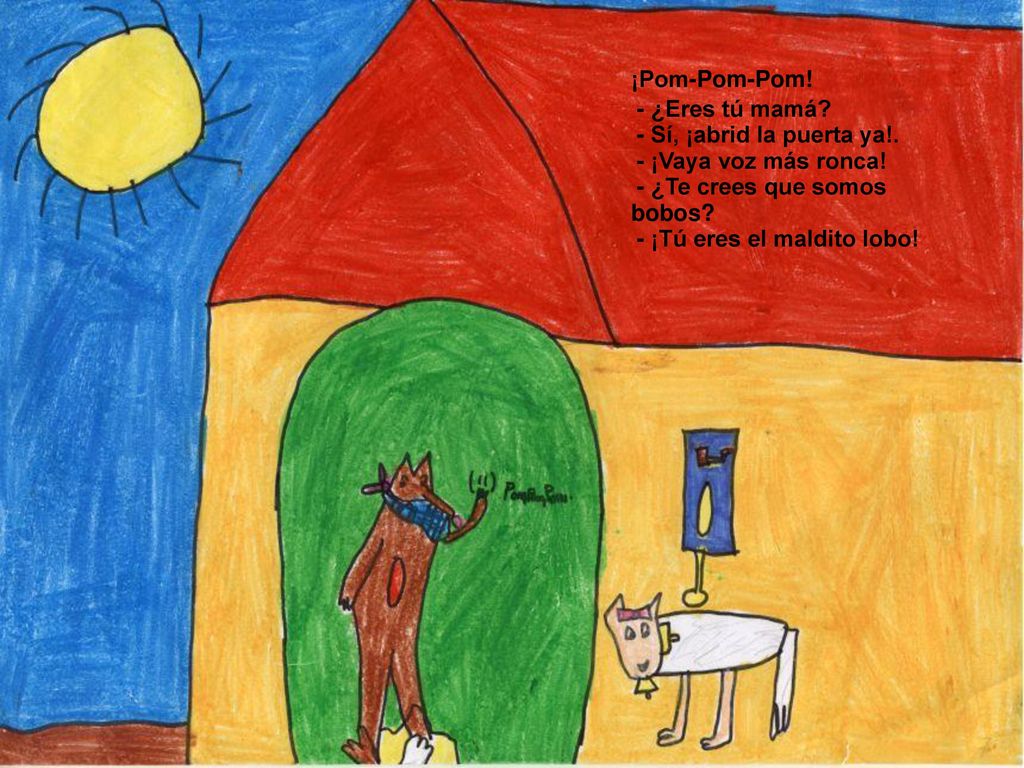 ¡Pom-Pom-Pom!
- ¿Eres tú mamá?
- Sí, ¡abrid la puerta ya!.
- ¡Vaya voz más ronca!
- ¿Te crees que somos
bobos?
- ¡Tú eres el maldito lobo!
PomPomPom.